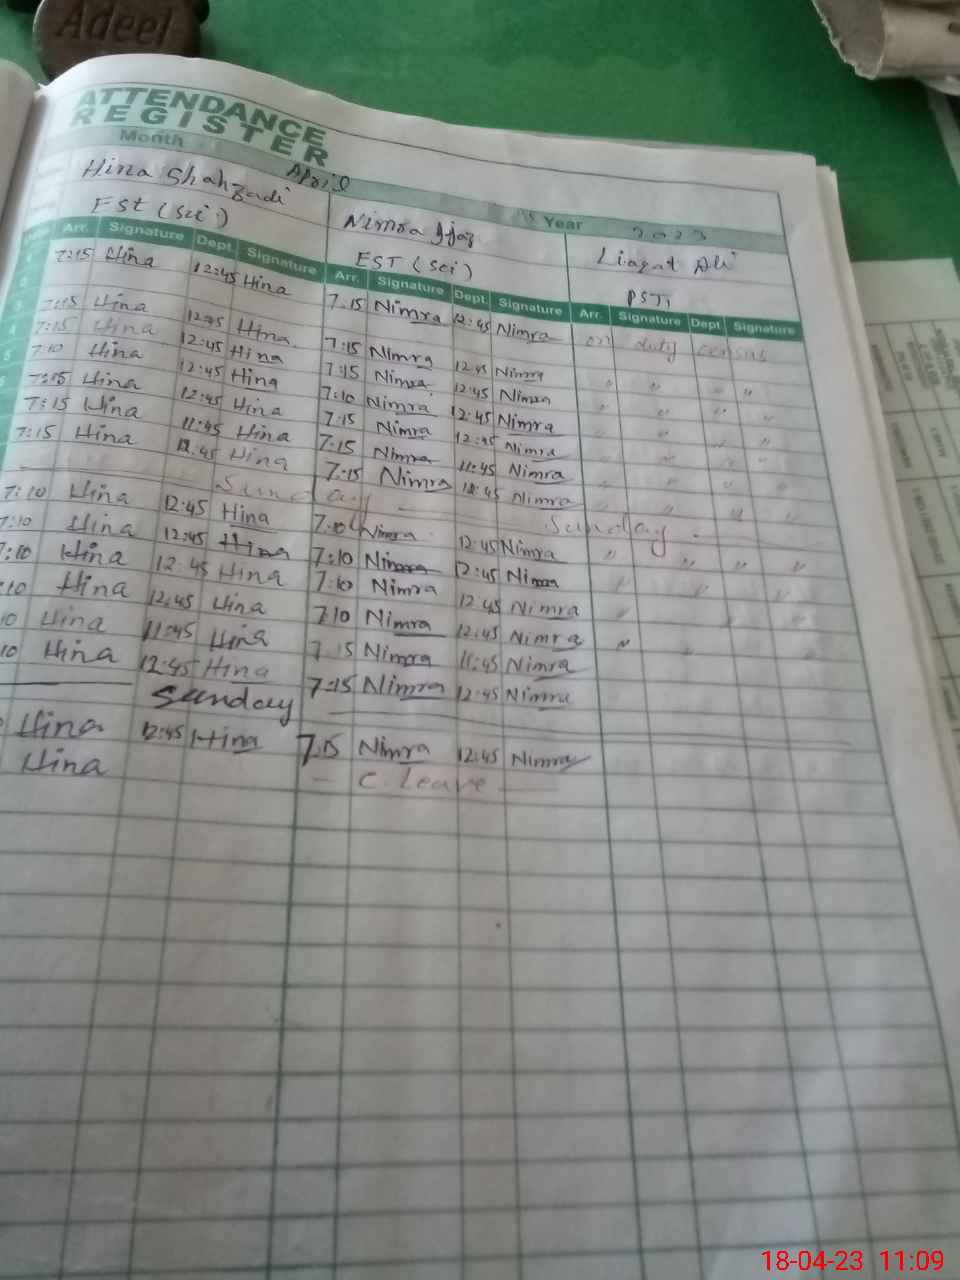 Adeel
ATTENDANCE
REGISTER
Month April Year 2023
Hina Shahzadi Nimra Ijaz Liaqat Ali
EST (Sci) EST (Sci) PSTi
Arr. Signature Dept. Signature Arr. Signature Dept. Signature Arr. Signature Dept. Signature
7:15 Hina 12:45 Hina 7:15 Nimra 12:45 Nimra on duty census
7:15 Hina 12:45 Hina 7:15 Nimra 12:45 Nimra " " " "
7:15 Hina 12:45 Hina 7:15 Nimra 12:45 Nimra " " " "
7:10 Hina 12:45 Hina 7:10 Nimra 12:45 Nimra " " " "
7:15 Hina 12:45 Hina 7:15 Nimra 12:45 Nimra " " " "
7:15 Hina 11:45 Hina 7:15 Nimra 11:45 Nimra " " " "
7:15 Hina 12:45 Hina 7:15 Nimra 12:45 Nimra " " " "
Sunday Sunday
7:10 Hina 12:45 Hina 7:10 Nimra 12:45 Nimra " " " "
7:10 Hina 12:45 Hina 7:10 Nimra 12:45 Nimra " " " "
7:10 Hina 12:45 Hina 7:10 Nimra 12:45 Nimra "
:10 Hina 12:45 Hina 7:10 Nimra 12:45 Nimra "
10 Hina 11:45 Hina 7:15 Nimra 11:45 Nimra
10 Hina 12:45 Hina 7:15 Nimra 12:45 Nimra
Sunday
Hina 12:45 Hina 7:15 Nimra 12:45 Nimra
Hina C. Leave
18-04-23 11:09